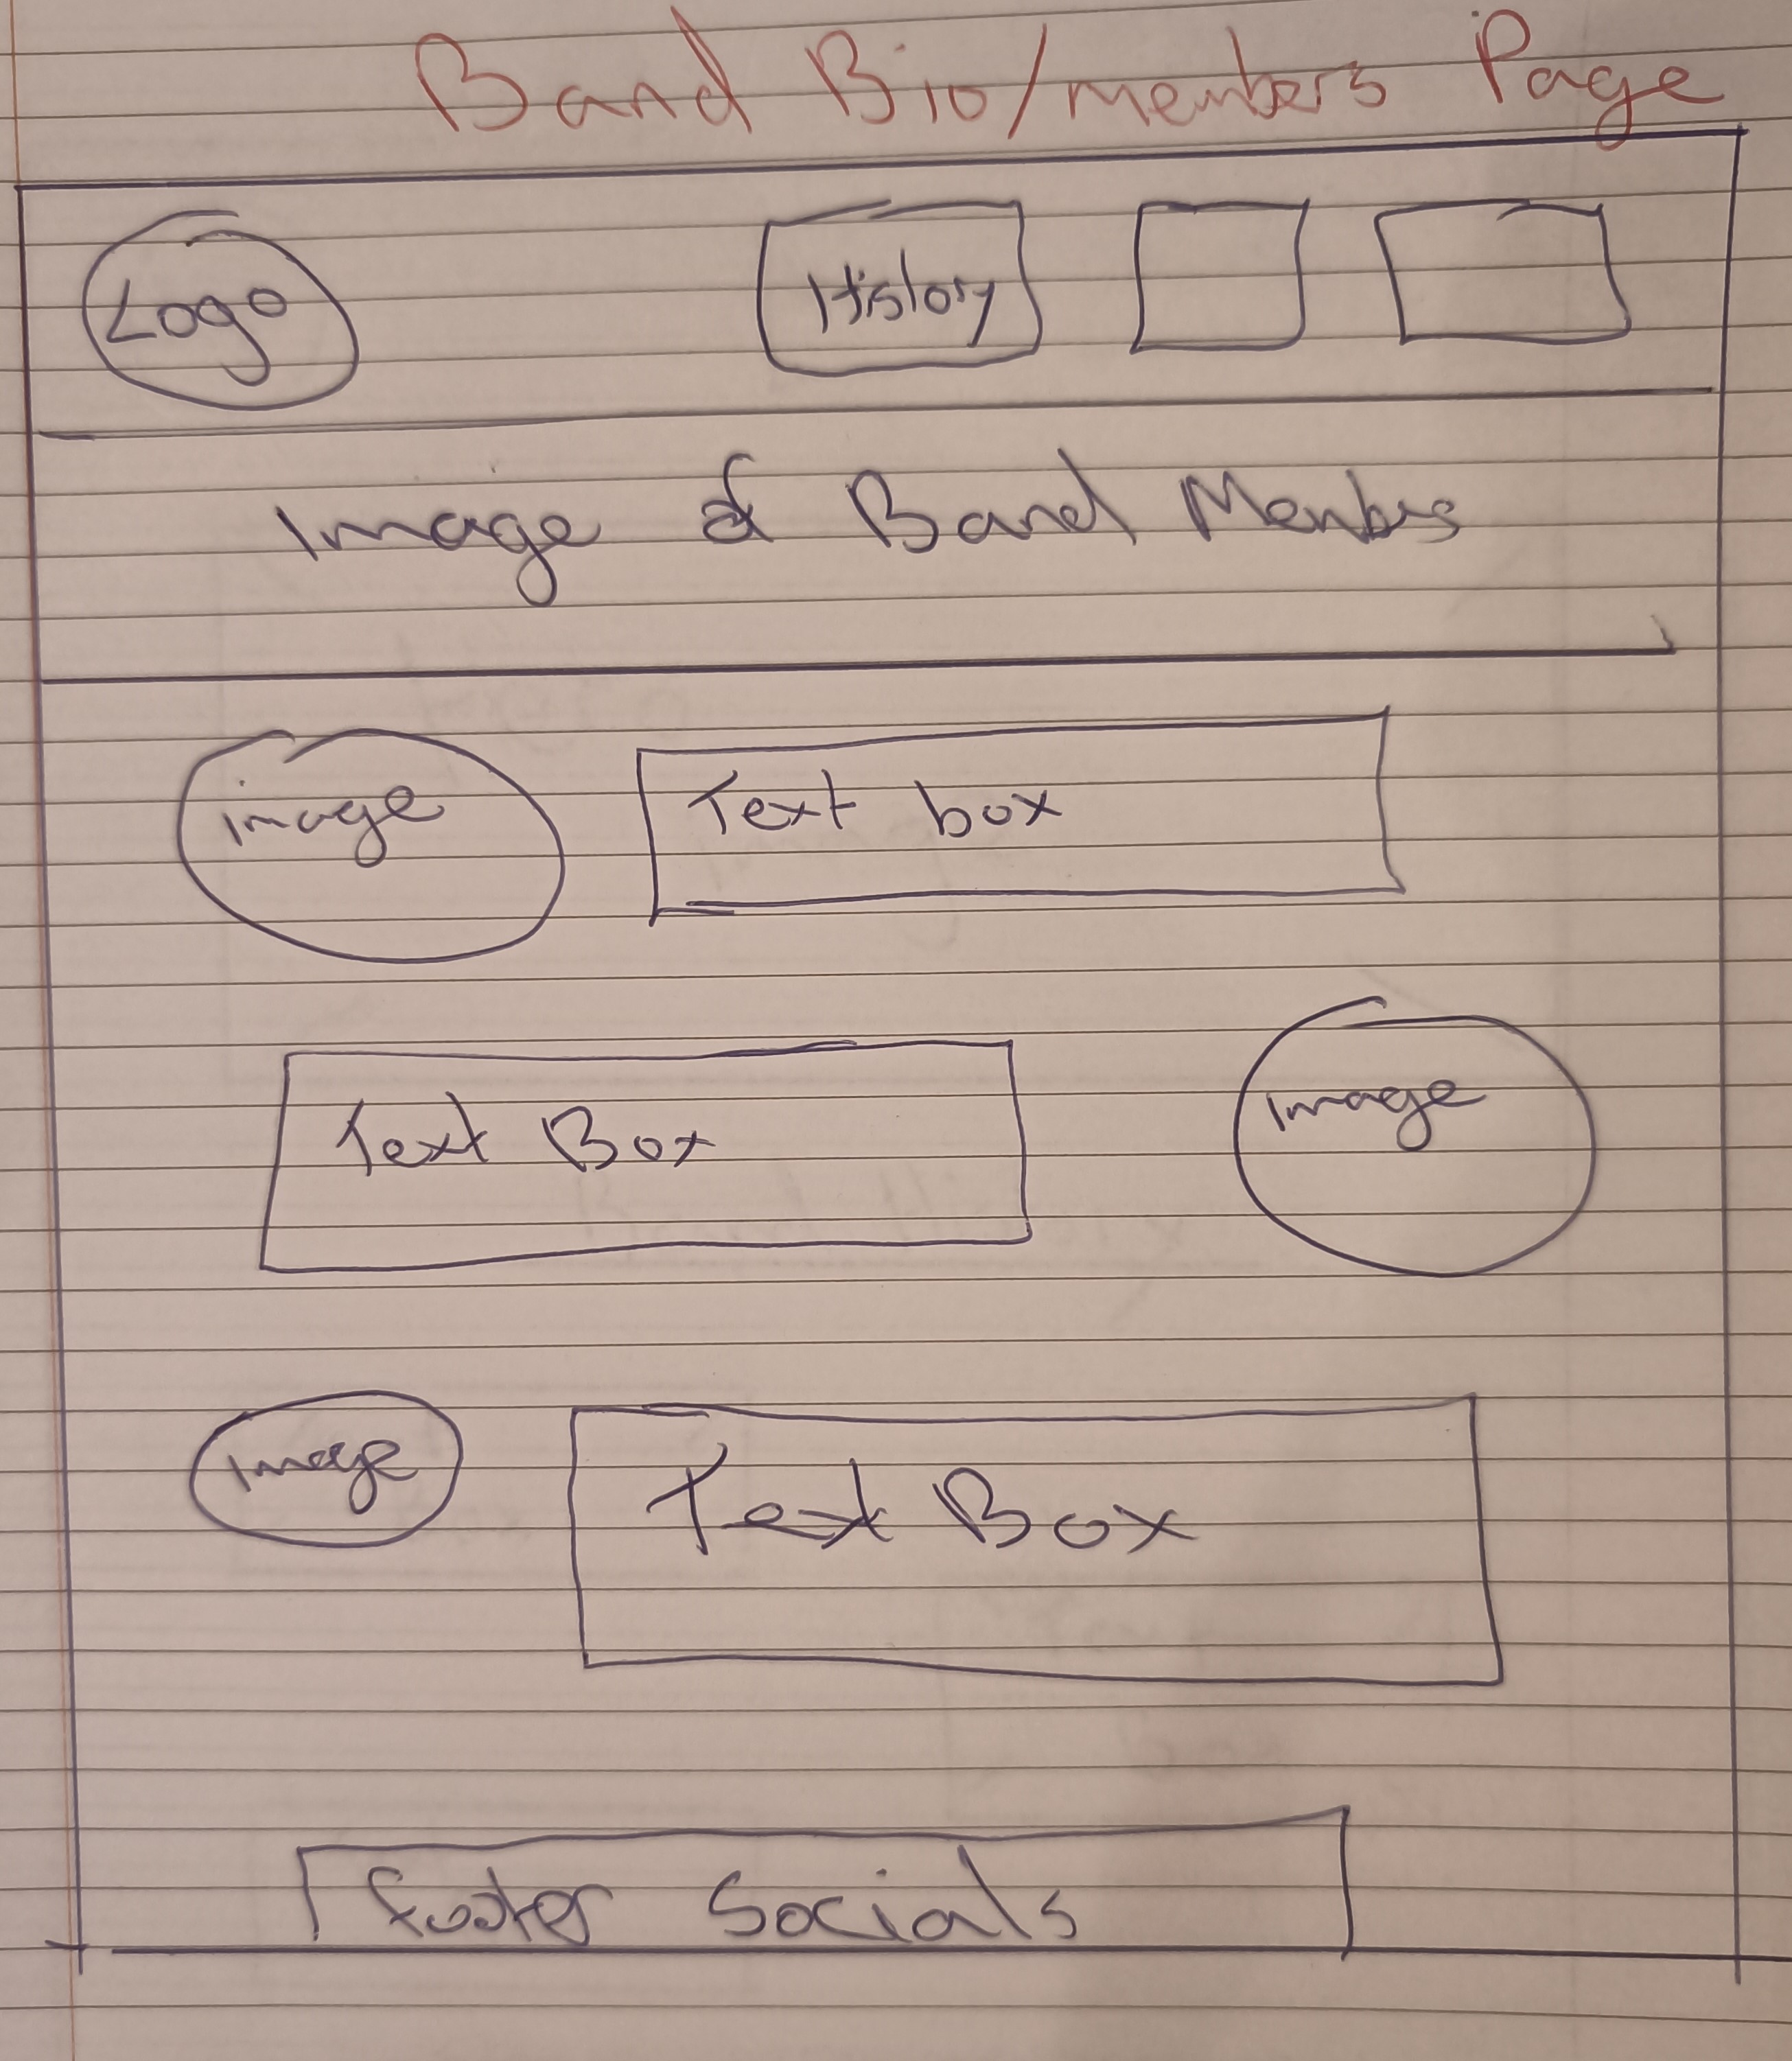 Band Bio/members Page
Logo
History
Image of Band Members
image
Text box
Text Box
Image
Image
Text Box
footer Socials